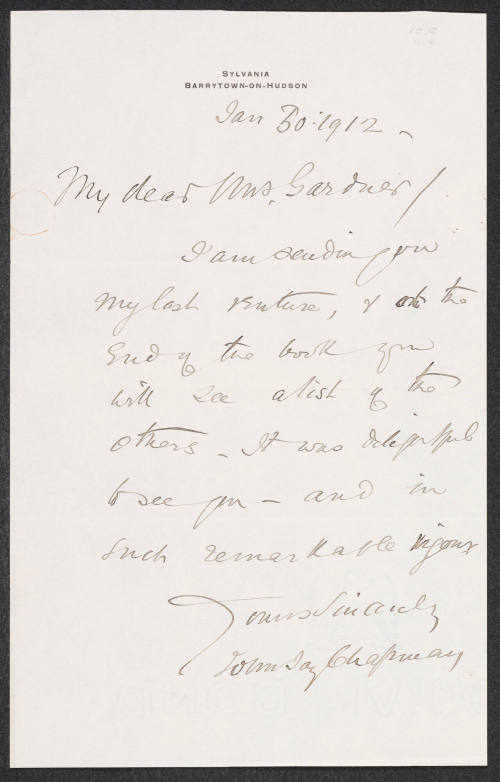 SYLVANIA
BARRYTOWN-ON-HUDSON
Jan 30. 1912 -
My dear Mrs. Gardner /
I am sending you
my last venture, & at the
End of the book you
will see a list of the
others - It was delightful
to see you - and in
such remarkable vigour
Yours Sincerely
John Jay Chapman